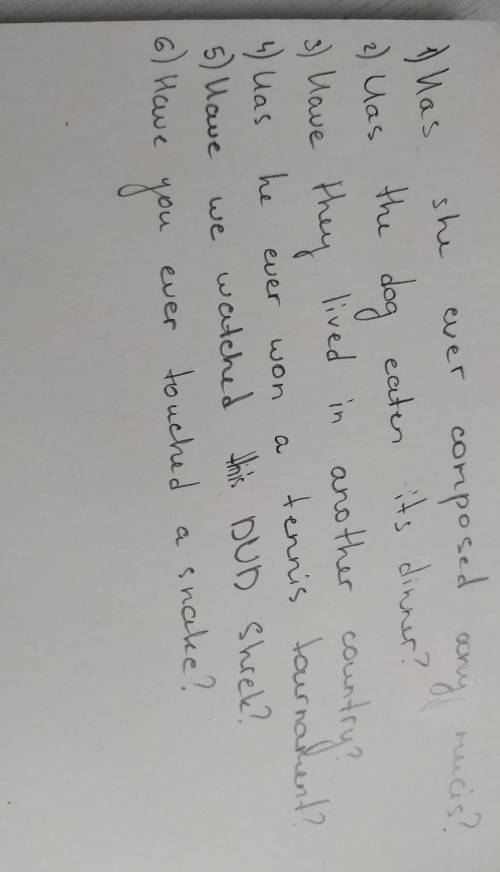 1) Has she ever composed any mucis?
2) Has the dog eaten its dinner?
3) Have they lived in another country?
4) Has he ever won a tennis tournament?
5) Have we watched this DVD Shrek?
6) Have you ever touched a snake?